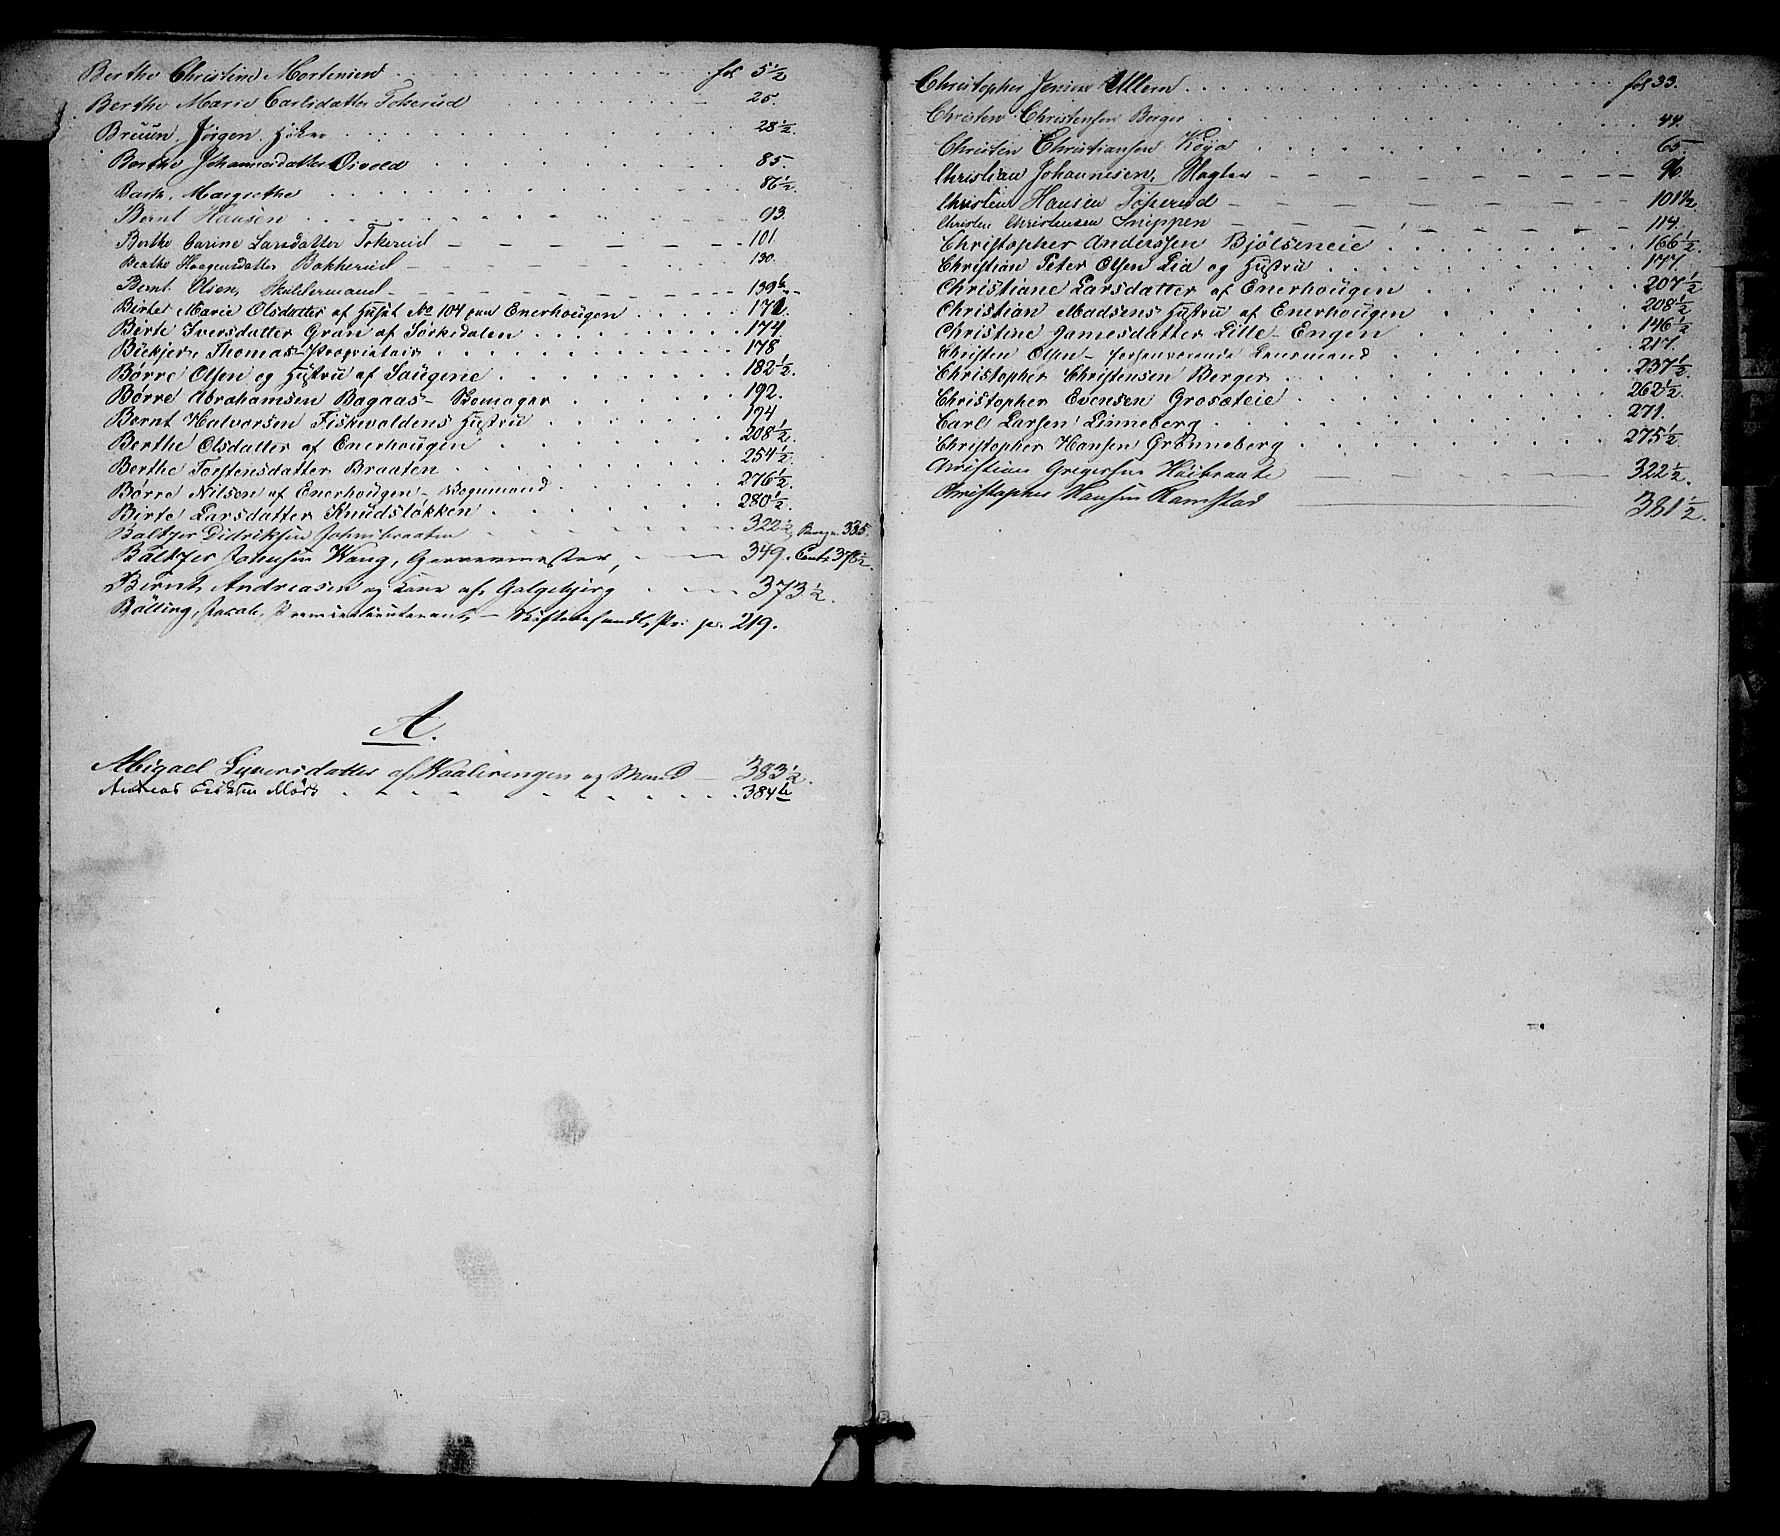 Berthe Christine Mortensen . . . fol 5½
Berthe Marie Carlsdatter Tokerud . . . 25.
Bruun, Jørgen, Høker . . . 28½.
Berthe Johannesdatter Osvold . . . 85
Barth, Margrethe . . . 86½.
Bernt Hansen . . . 93.
Berthe Carine Larsdatter Tokerud — 101
Berthe Haagensdatter Bakkerud — 130.
Bernt Olsen, — 139½
Birte Marie Olsdatter af Huset No 104 paa Enerhougen . . . 171.
Berte Iversdatter Gran af Sørkedalen . . . 174.
Bückjer, Thomas - Proprietair . . . 178
Børre Olsen og Hustru af Saugene . . . 182½.
Børre Abrahamsen Bagaas - . . . 192.
Bernt Halvorsen Fiskevoldens Hustru . . . 194
Berthe Olsdatter af Enerhougen . . . 208½
Berthe Torstensdatter Braaten . . . 254½
Børre Nilsen af Enerhougen - . . . 276½.
Birte Larsdatter Knudsløkken . . . 280½.
Baltzer Didriksen . . . 322½, 335.
Baltzer Johnsen Wang, Garvermester, — 349. Cont. 378½.
Bernt Andreasen og Kone af Galgebjerg — 373½.
Bølling, Jacob, Premierlieutenant, — Skiftebehandls Pr: p. 219.
A.
Abigael Syversdatter af Vaalerengen og Mand — 383½.
Andreas . . . 384½
Christopher Jensen Ullern . . . fol 33.
Christen Christensen Berger . . . 44.
Christen Christiansen Røya . . . 65
Christian Johannesen, Slagter — 96
Christen Hansen Tokerud — 101½
Christen Christensen Snippen — 114.
Christopher Anderssen Bjølseneie . . . 166½.
Christian Peter Olsen Lia og Hustru . . . 177.
Christiane Larsdatter af Enerhougen . . . 207½
Christian Madsens Hustru af Enerhougen . . . 208½
Christine Jamesdatter Lille-Engen . . . 146½
Christen Olsen - forhenværende Lensmand . . . 217.
Christopher Christensen Berger . . . 237½
Christopher Evensen Grosæteie . . . 262½.
Carl Larsen Linneberg . . . 271.
Christopher Hansen Grønneberg . . . 275½
Christian Gregersen Høibraate — 322½.
Christopher Hansen Hamstad — 381½.